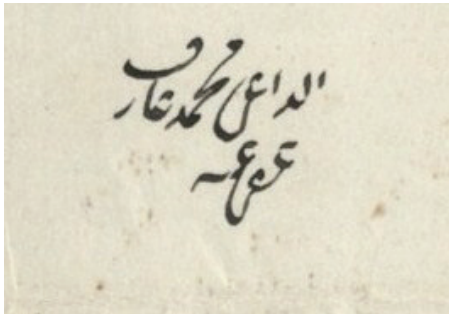 الداعی محمد عارف
عفی عنه